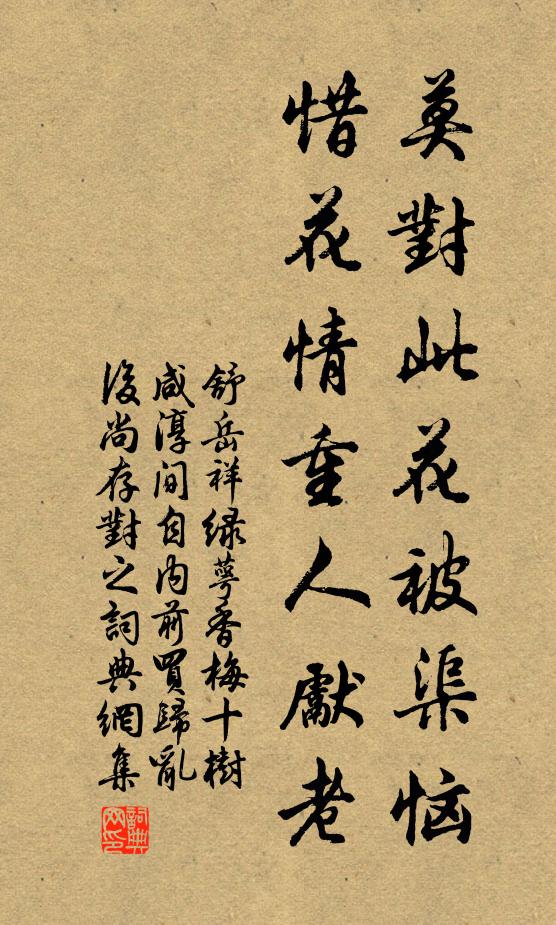 莫對此花被渠恼
惜花情重人獻老
舒岳祥绿萼香梅十樹
咸淳间自内前買歸亂
後尚存對之詞典網集
詞典
网印